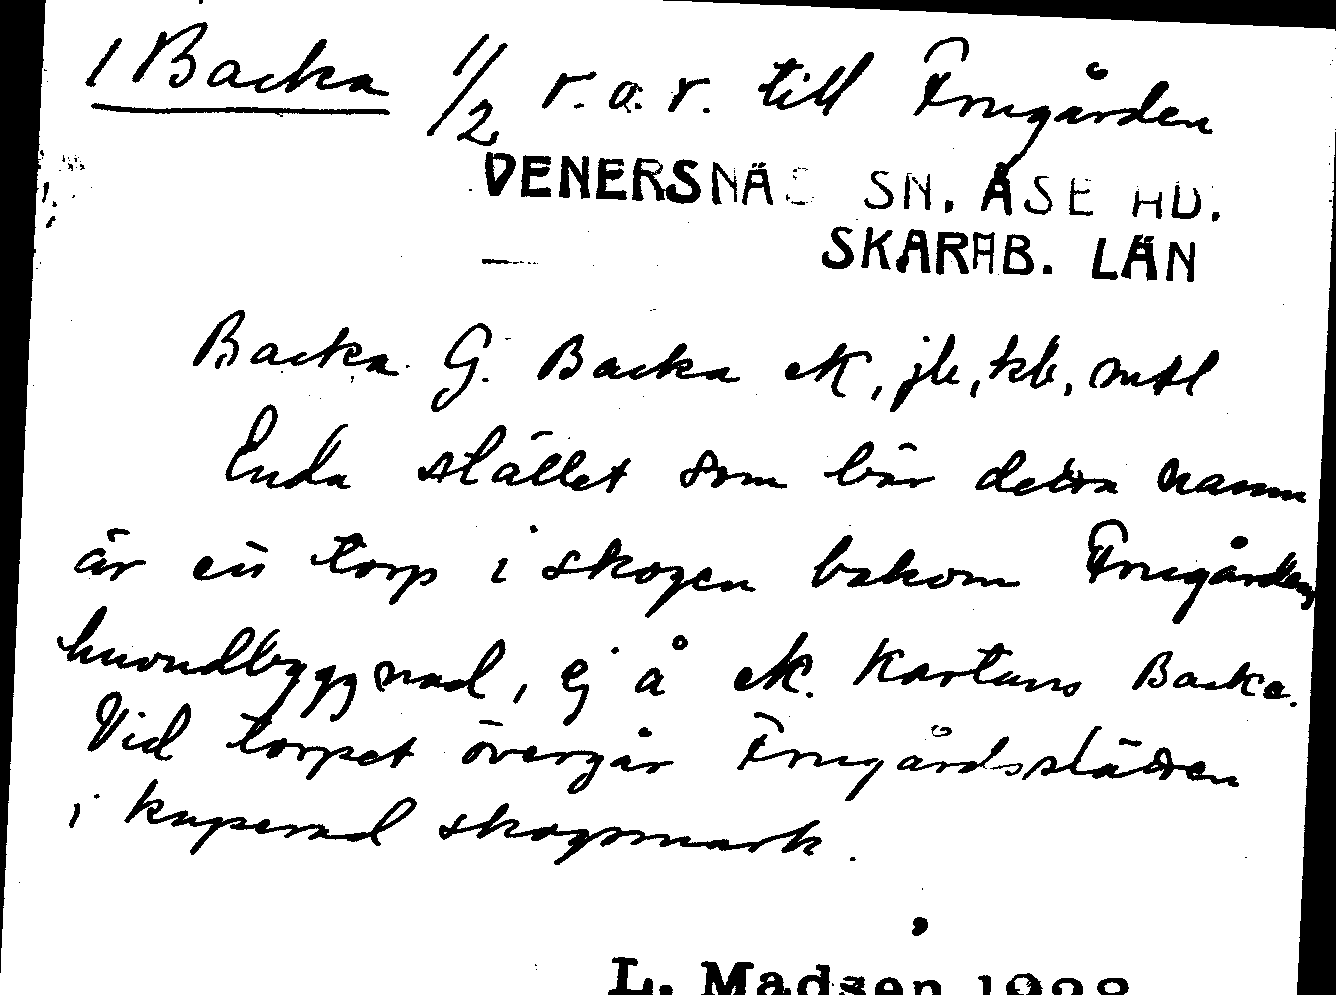 1 Backa 1/2 r.o.r. till Frugården
VENERSNÄS SN. ÅSE HD.
SKARAB. LÄN
Backa G. Backa ek, jb, kb, mtl
Enda stället som bär detta namn
är ett torp i skogen bakom Frugårdens
huvudbyggnad, ej å ek. Kartans Backa.
Vid torpet övergår Frugårdsslätten
i kuperad skogsmark.
L. Madsen 1928